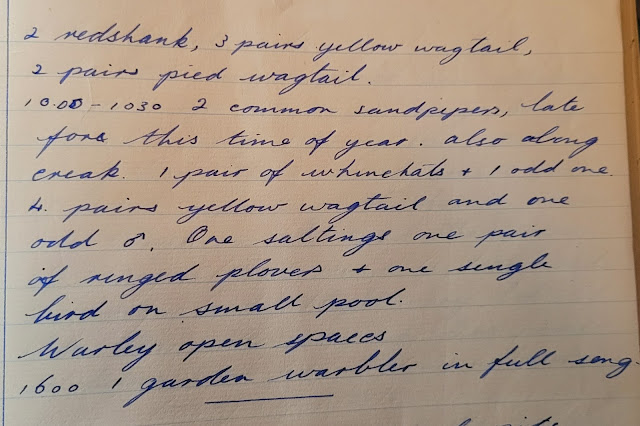 2 redshank, 3 pairs yellow wagtail,
2 pairs pied wagtail.
10.00 - 1030 2 common sandpipers, late
fore this time of year. also along
creak. 1 pair of whinchats + 1 odd one.
4. pairs yellow wagtail and one
odd ♂. One saltings one pair
of ringed plover + one single
bird on small pool.
Warley open spaces
1600 1 garden warbler in full song.